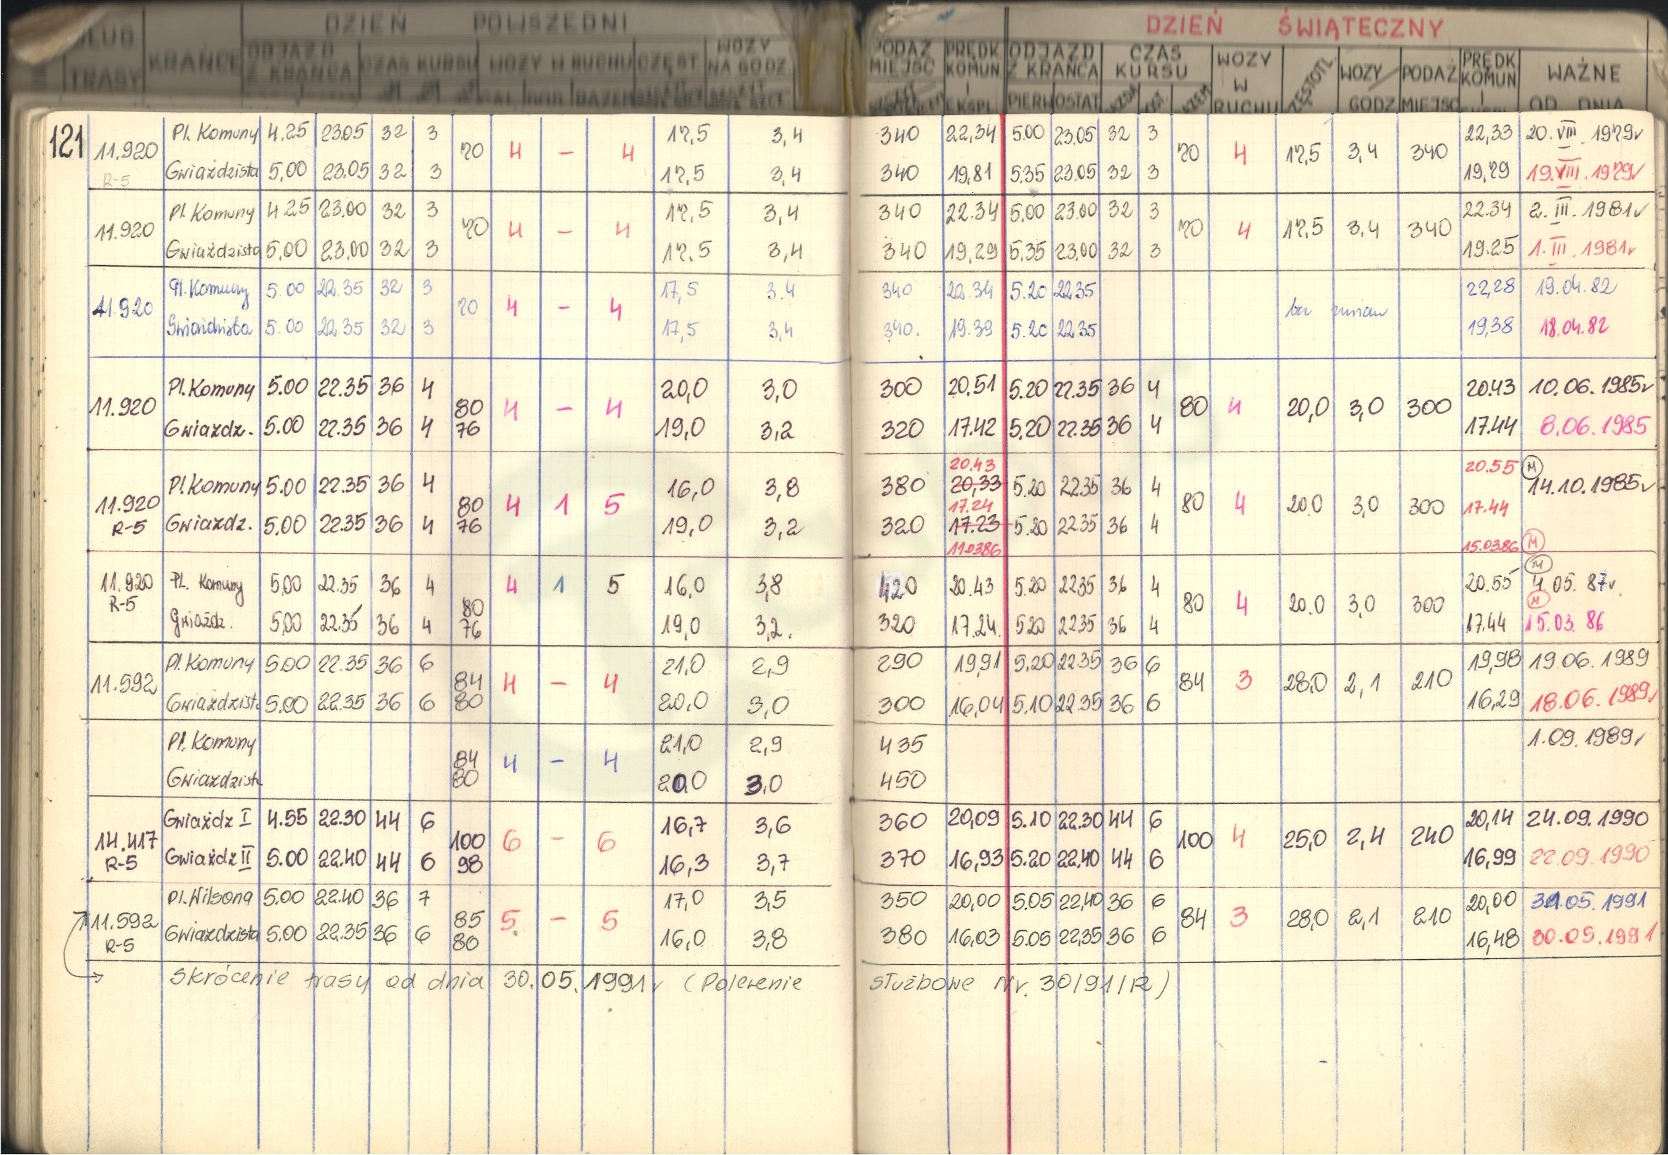 DZIEŃ POWSZEDNI DZIEŃ ŚWIĄTECZNY
TRASY KRAŃCE ODJAZD Z KRAŃCA CZAS KURSU WOZY W RUCHU CZĘST WOZY NA GODZ PODAŻ MIEJSC PRĘDK KOMUN I EKSPL ODJAZD Z KRAŃCA CZAS KURSU WOZY W RUCHU WOZY GODZ PODAŻ MIEJSC PRĘDK KOMUN I WAŻNE OD DNIA
121 Pl. Komuny 4.25 23.05 32 3 17,5 3,4 340 22,34 5.00 23.05 32 3 22,33 20. VIII. 1979r
11.920 70 4 – 4 70 4 17,5 3,4 340
R-5 Gwiaździsta 5,00 23.05 32 3 17,5 3,4 340 19,81 5.35 23.05 32 3 19,79 19. VIII. 1979r
Pl. Komuny 4.25 23.00 32 3 17,5 3,4 340 22.34 5,00 23.00 32 3 22.34 2. III. 1981r
11.920 70 4 – 4 70 4 17,5 3,4 340
Gwiaździsta 5,00 23.00 32 3 17.5 3,4 340 19,29 5.35 23.00 32 3 19.25 1. III. 1981r
Pl. Komuny 5.00 22.35 32 3 17,5 3.4 340 22.34 5.20 22.35 22,28 19.04.82
11.920 70 4 – 4 bez zmian
Gwiaździsta 5.00 22.35 32 3 17,5 3,4 340. 19.39 5.20 22.35 19,38 18.04.82
Pl. Komuny 5.00 22.35 36 4 20,0 3,0 300 20,51 5.20 22.35 36 4 20.43 10.06.1985r
11.920 80 4 – 4 80 4 20,0 3,0 300
Gwiaźdz. 5.00 22.35 36 4 76 19,0 3,2 320 17.42 5,20 22.35 36 4 17.44 8.06.1985
20.43 20.55 M
Pl. Komuny 5.00 22.35 36 4 16,0 3,8 380 20,33 5.20 22.35 36 4 14.10.1985r
11.920 80 4 1 5 17.24 80 4 20.0 3,0 300 17.44
R-5 Gwiaźdz. 5,00 22.35 36 4 76 19,0 3,2 320 17.23 5.20 22.35 36 4
11.03.86 15.03.86 M
M
11.920 Pl. Komuny 5,00 22.35 36 4 4 1 5 16,0 3,8 420 20.43 5.20 22.35 36 4 20.55 4.05.87r.
R-5 80 80 4 20.0 3,0 300 M
Gwiaźdz. 5,00 22.35 36 4 76 19,0 3,2. 320 17.24. 5.20 22.35 36 4 17.44 15.03.86
Pl. Komuny 5.00 22.35 36 6 21,0 2,9 290 19,91 5.20 22.35 36 6 19,98 19.06.1989
11.592 84 4 – 4 84 3 28,0 2,1 210
Gwiaździsta 5.00 22.35 36 6 80 20,0 3,0 300 16,04 5.10 22.35 36 6 16,29 18.06.1989r
Pl. Komuny 21,0 2,9 435 1.09.1989r
84 4 – 4
Gwiaździsta 80 20,0 3,0 450
Gwiaźdz I 4.55 22.30 44 6 16,7 3,6 360 20,09 5.10 22.30 44 6 20,14 24.09.1990
14.417 100 6 – 6 100 4 25,0 2,4 240
R-5 Gwiaźdz II 5.00 22.40 44 6 98 16,3 3,7 370 16,93 5.20 22,40 44 6 16,99 22.09.1990
Pl. Wilsona 5.00 22.40 36 7 17,0 3,5 350 20,00 5.05 22,40 36 6 20,00 31.05.1991
11.592 85 5 – 5 84 3 28,0 2,1 210
R-5 Gwiaździsta 5.00 22.35 36 6 80 16,0 3,8 380 16,03 5.05 22,35 36 6 16,48 30.05.1991
Skrócenie trasy od dnia 30.05.1991r (Polecenie służbowe Nr. 30/91/R)